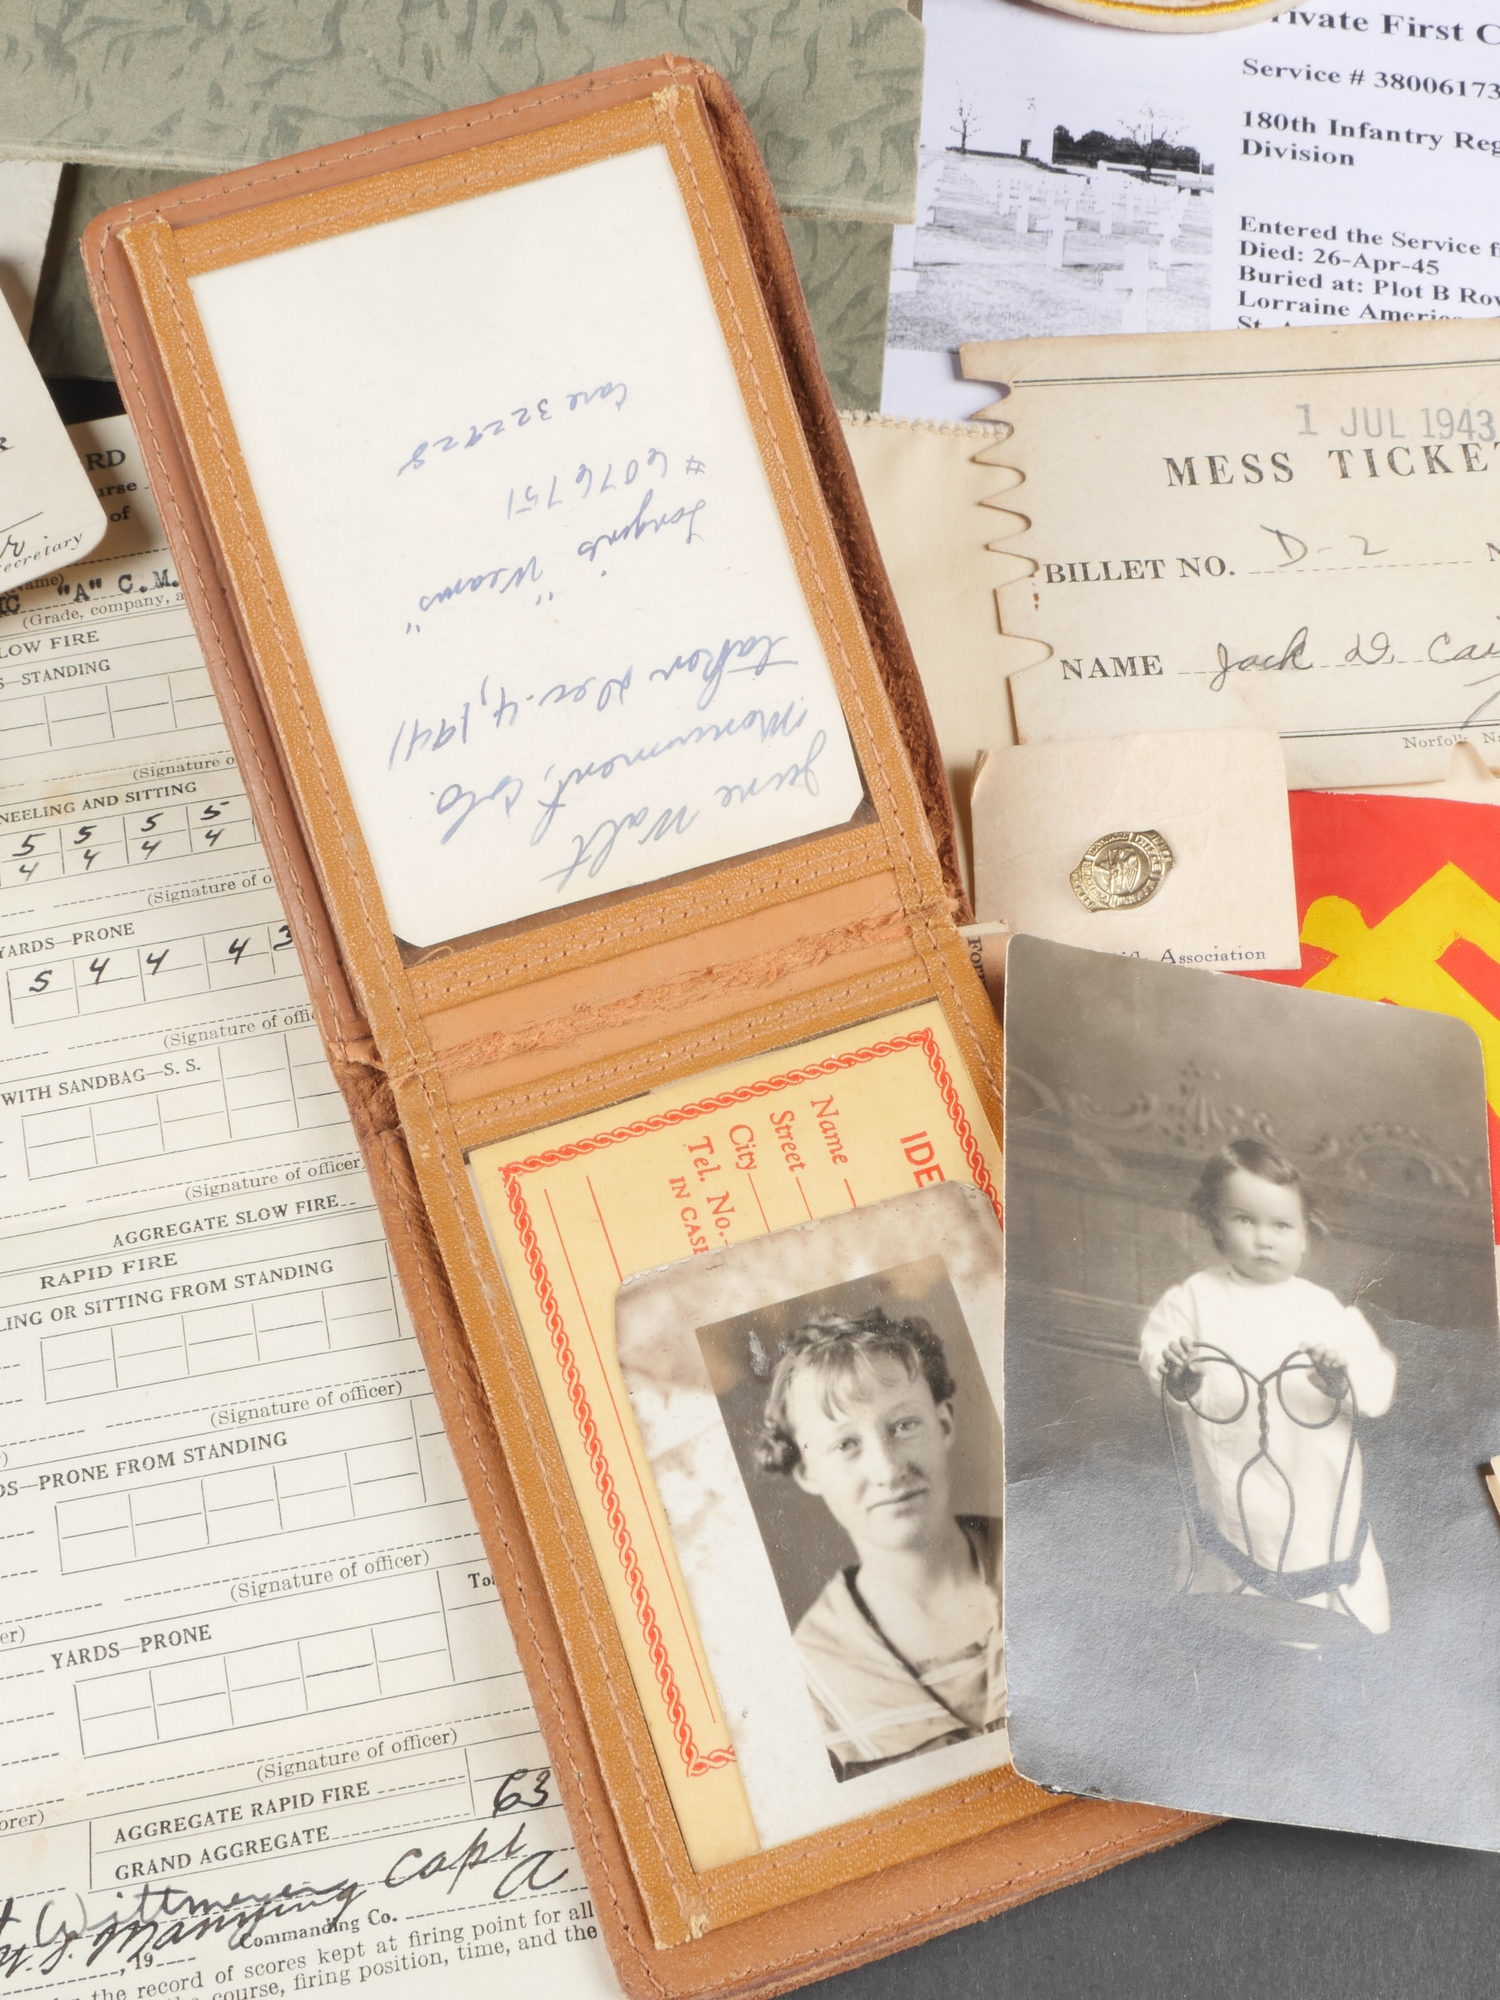 rivate First C
Service # 38006173
180th Infantry Reg
Division
Entered the Service f
Died: 26-Apr-45
Buried at: Plot B Row
Lorraine America
St. A
1 JUL 1943
MESS TICKET
BILLET NO. D-2 N
NAME Jack D. Cai
Norfolk Na
Association
For
June Walt
Monument, Colo.
taken Dec-4, 1941
Longines "Wearns"
# 6076751
Care 322928
IDE
Name
Street
City
Tel. No.
IN CASE
R
Secretary
RD
urse
of
(Name)
"A" C.M.
(Grade, company, a
LOW FIRE
S—STANDING
(Signature o
NEELING AND SITTING
5 5 5 5
4 4 4 4
(Signature of o
YARDS—PRONE
5 4 4 4 3
(Signature of offi
WITH SANDBAG—S. S.
(Signature of officer)
AGGREGATE SLOW FIRE
RAPID FIRE
LING OR SITTING FROM STANDING
(Signature of officer)
DS—PRONE FROM STANDING
(Signature of officer)
To
er)
YARDS—PRONE
(Signature of officer)
orer)
AGGREGATE RAPID FIRE
63
GRAND AGGREGATE
Wittmeyer Capt
Manning A
Commanding Co.
, 19
the record of scores kept at firing point for all
course, firing position, time, and the